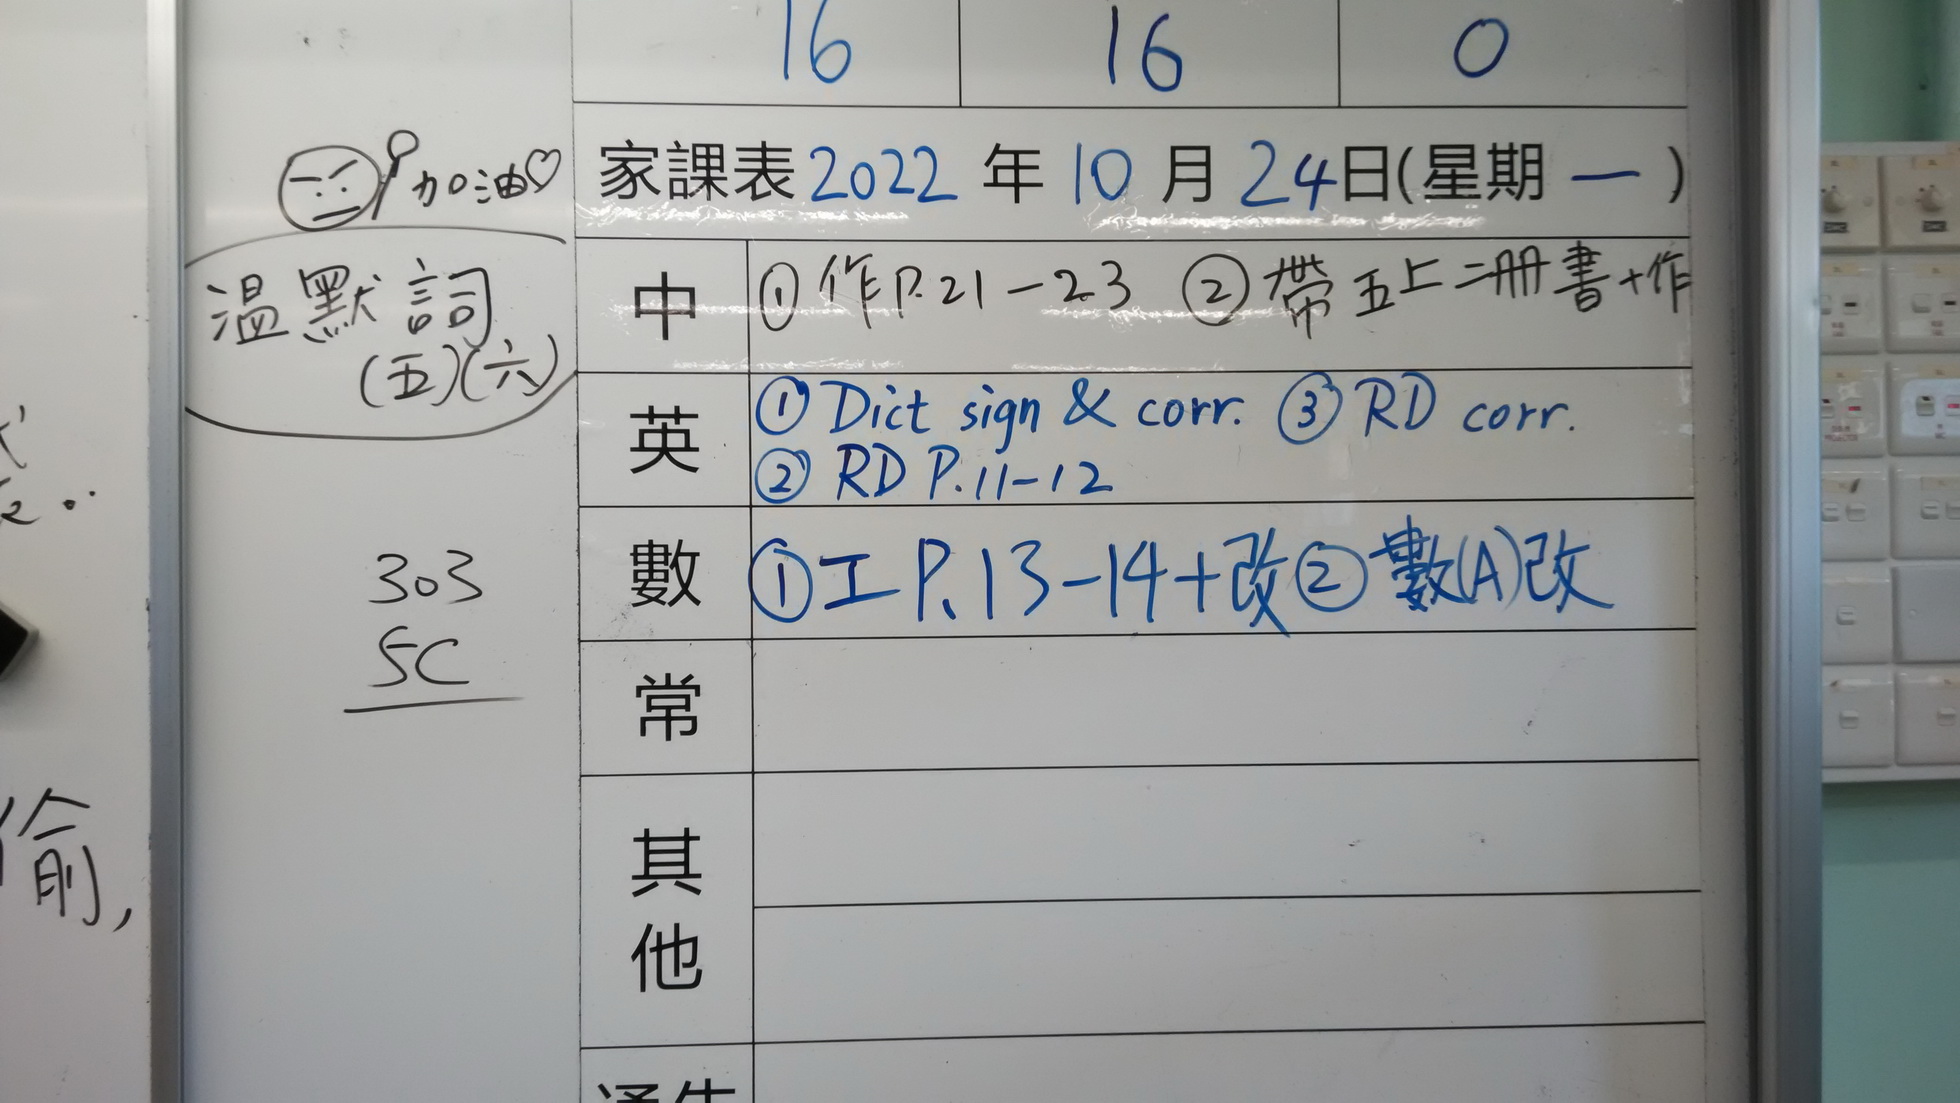 16 16 0
家課表 2022 年 10 月 24 日(星期 一 )
加油♡
溫默詞
(五)(六)
中 ① 作 P.21-23 ② 帶五上二冊書+作
英 ① Dict sign & corr. ③ RD corr.
② RD P.11-12
數 ① 工 P.13-14+改 ② 數(A)改
303
5C
常
其他
通告
偷,